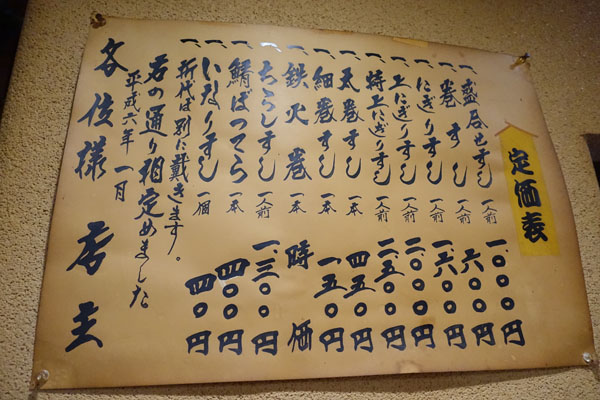 定価表
一、盛合せすし 一人前 一、〇〇〇円
一、巻すし 一人前 六〇〇円
一、にぎりすし 一人前 一、六〇〇円
一、上にぎりすし 一人前 二、〇〇〇円
一、特上にぎりすし 一人前 二、五〇〇円
一、太巻すし 一本 四五〇円
一、細巻すし 一本 一五〇円
一、鉄火巻 一本 時価
一、ちらしすし 一人前 一、三〇〇円
一、鯖ばってら 一本 四〇〇円
一、いなりすし 一個 四〇円
折代は別に戴きます。
右の通り相定めました
平成六年 一月
各位様 店主